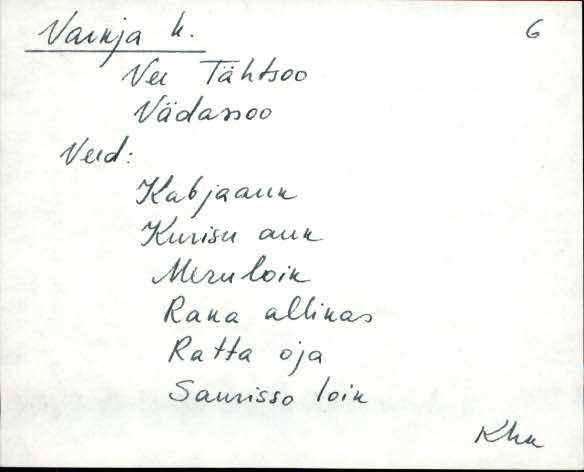 Vainja k. 6
Vee Tähtsoo
Vädassoo
Veed:
Kabjaauk
Kurisu auk
Meruloik
Rana allikas
Ratta oja
Saurisso loik
Khk